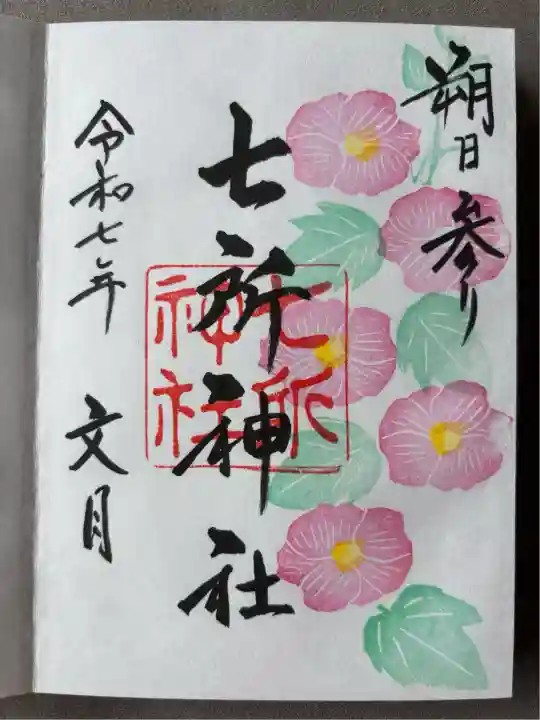 朔日参り
七所神社
七所
神社
令和七年 文月